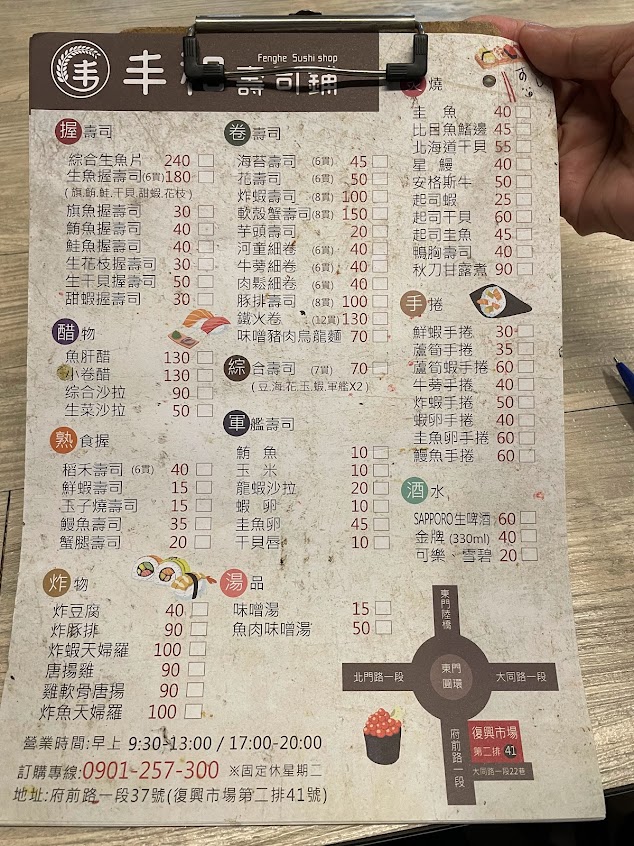 丰
Fenghe Sushi shop
丰和壽司舖
握壽司
綜合生魚片 240
生魚握壽司(6貫) 180
(旗,鮪,鮭,干貝,甜蝦,花枝)
旗魚握壽司 30
鮪魚握壽司 40
鮭魚握壽司 40
生花枝握壽司 30
生干貝握壽司 50
甜蝦握壽司 30
醋物
魚肝醋 130
小卷醋 130
綜合沙拉 90
生菜沙拉 50
熟食握
稻禾壽司 (6貫) 40
鮮蝦壽司 15
玉子燒壽司 15
鰻魚壽司 35
蟹腿壽司 20
炸物
炸豆腐 40
炸豚排 90
炸蝦天婦羅 100
唐揚雞 90
雞軟骨唐揚 90
炸魚天婦羅 100
卷壽司
海苔壽司 (6貫) 45
花壽司 (6貫) 50
炸蝦壽司 (8貫) 100
軟殼蟹壽司 (8貫) 150
芋頭壽司 20
河童細卷 (6貫) 40
牛蒡細卷 (6貫) 40
肉鬆細卷 (6貫) 40
豚排壽司 (8貫) 100
鐵火卷 (12貫) 130
味噌豬肉烏龍麵 70
綜合壽司 (7貫) 70
(豆,海,花,玉,蝦,軍艦X2)
軍艦壽司
鮪魚 10
玉米 10
龍蝦沙拉 20
蝦卵 10
圭魚卵 45
干貝唇 10
湯品
味噌湯 15
魚肉味噌湯 50
燒
圭魚 40
比目魚鰭邊 45
北海道干貝 55
星鰻 40
安格斯牛 50
起司蝦 25
起司干貝 60
起司圭魚 45
鴨胸壽司 40
秋刀甘露煮 90
手捲
鮮蝦手捲 30
蘆筍手捲 35
蘆筍蝦手捲 60
牛蒡手捲 40
炸蝦手捲 50
蝦卵手捲 40
圭魚卵手捲 60
鰻魚手捲 60
酒水
SAPPORO生啤酒 60
金牌 (330ml) 40
可樂、雪碧 20
東門陸橋
北門路一段
東門圓環
大同路一段
府前路一段
復興市場
第二排 41
大同路一段22巷
營業時間:早上 9:30-13:00 / 17:00-20:00
訂購專線:0901-257-300 ※固定休星期二
地址:府前路一段37號(復興市場第二排41號)